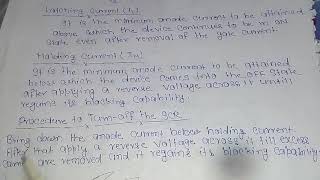 Latching Current (IL)
It is the minimum anode current to be attained
above which the device continues to be in on
state even after removal of the gate current
Holding Current (IH)
It is the minimum anode current to be attained
below which the device comes into the OFF state
after applying a reverse voltage across it until
regains its blocking capability.
Procedure to Turn-off the SCR
Bring down the anode current below holding current
After that apply a reverse voltage across it till excess
are removed and it regains its blocking capability